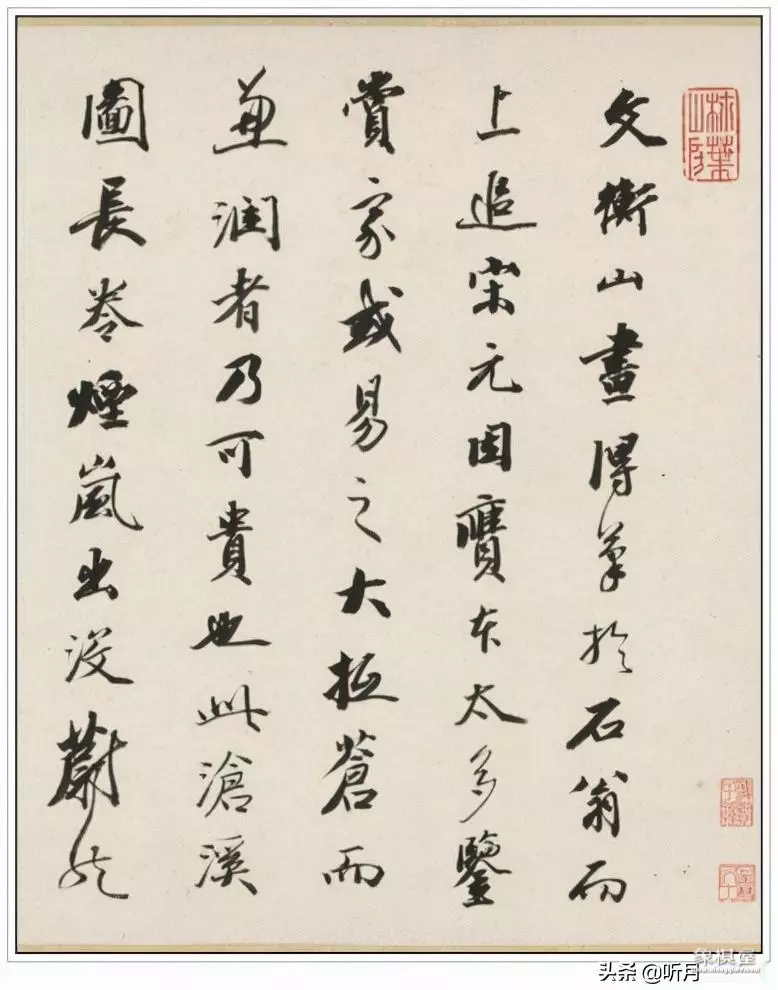 文衡山畫得筆於石翁而
上追宋元因贋本太多鑒
賞家或易之大抵蒼而
兼潤者乃可貴也此滄溪
圖長卷煙嵐出沒蔚然
象棋屋
头条 @听月